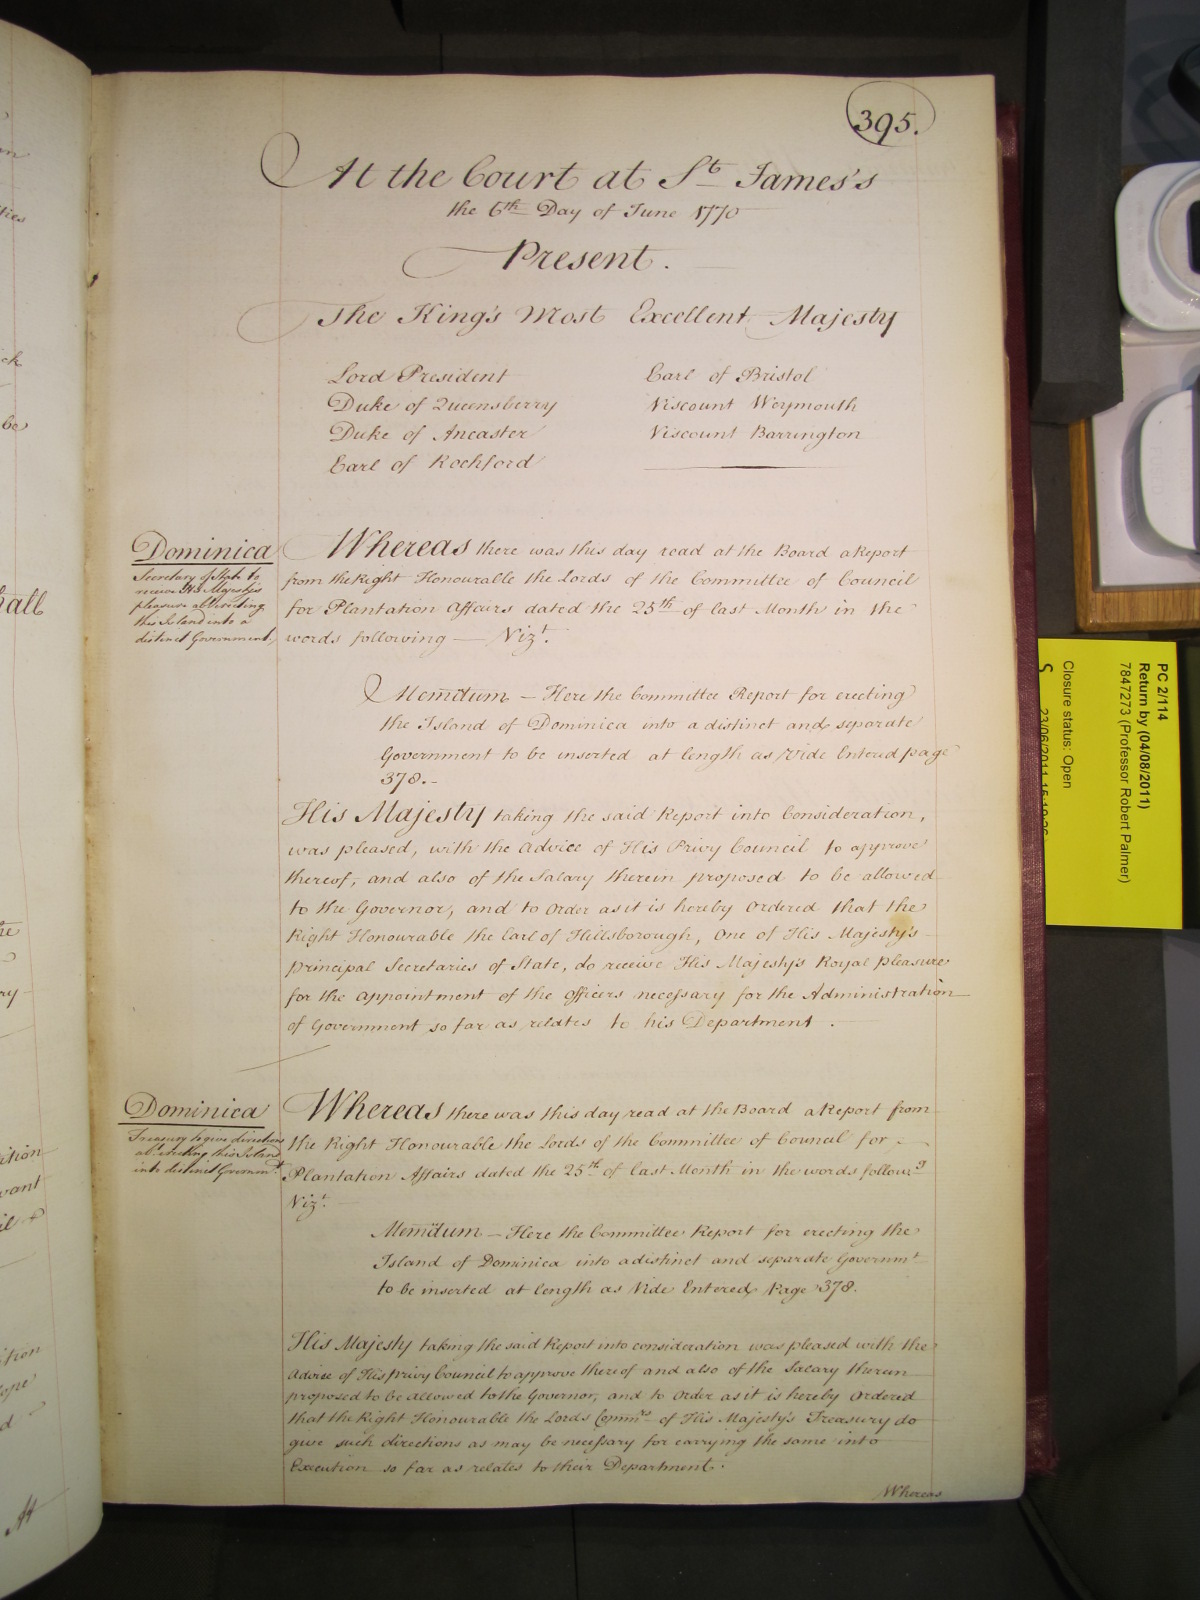 395.
At the Court at St James's
the 6th Day of June 1770
Present.
The King's Most Excellent Majesty
Lord President
Duke of Queensberry
Duke of Ancaster
Earl of Rochford
Earl of Bristol
Viscount Weymouth
Viscount Barrington
Dominica
Secretary of State to
receive His Majesty's
pleasure abt erecting
this Island into a
distinct Government.
Whereas there was this day read at the Board a Report
from the Right Honourable the Lords of the Committee of Council
for Plantation Affairs dated the 25th of last Month in the
words following — Vizt.
Memdum — Here the Committee Report for erecting
the Island of Dominica into a distinct and separate
Government to be inserted at length as Vide Entered page
378.-
His Majesty taking the said Report into Consideration,
was pleased, with the Advice of His Privy Council to approve
thereof, and also of the Salary therein proposed to be allowed
to the Governor, and to Order as it is hereby Ordered that the
Right Honourable the Earl of Hillsborough, One of His Majesty's
Principal Secretaries of State, do receive His Majesty's Royal Pleasure
for the appointment of the Officers necessary for the Administration
of Government so far as relates to his Department.
Dominica
Treasury to give directions
abt erecting this Island
into distinct Governmt.
Whereas there was this day read at the Board a Report from
the Right Honourable the Lords of the Committee of Council for
Plantation Affairs dated the 25th of last Month in the words followg
Vizt.
Memdum — Here the Committee Report for erecting the
Island of Dominica into a distinct and separate Governmt
to be inserted at length as Vide Entered Page 378.
His Majesty taking the said Report into consideration was pleased with the
Advice of His Privy Council to approve thereof and also of the Salary therein
proposed to be allowed to the Governor, and to Order as it is hereby Ordered
that the Right Honourable the Lords Commrs of His Majesty's Treasury do
give such directions as may be necessary for carrying the same into
Execution so far as relates to their Department.
Whereas
PC 2/114
Return by (04/08/2011)
7847273 (Professor Robert Palmer)
Closure status: Open